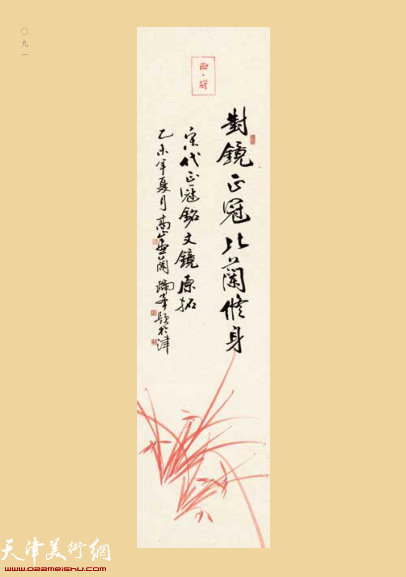 〇九一
對鏡正冠 比蘭修身
宋代正冠銘文鏡原拓
乙未年夏月高學畫蘭 瑞峯題於津
天津美術網
www.022meishu.com